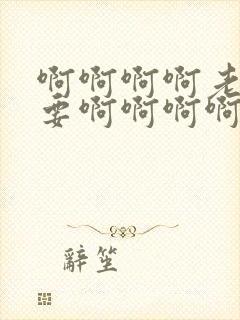 啊啊啊啊老
要啊啊啊啊
辭笙